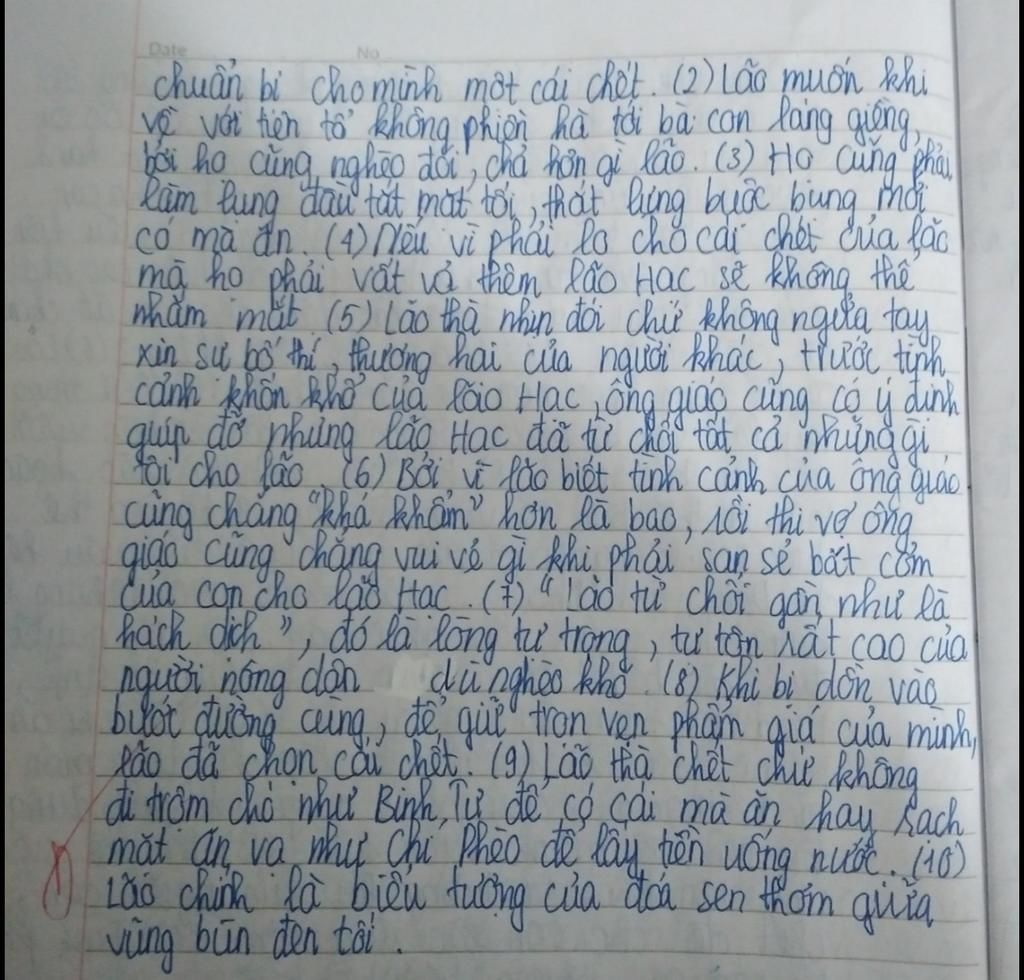 Date No
chuẩn bị cho mình một cái chết. (2) Lão muốn khi
về với tiên tổ không phiền hà tới bà con láng giềng,
bởi họ cũng nghèo đói, chả hơn gì lão. (3) Họ cũng phải
làm lụng đầu tắt mặt tối, thắt lưng buộc bụng mới
có mà ăn. (4) Nếu vì phải lo cho cái chết của lão
mà họ phải vất vả thêm lão Hạc sẽ không thể
nhắm mắt. (5) Lão thà nhịn đói chứ không ngửa tay
xin sự bố thí, thương hại của người khác, trước tình
cảnh khốn khổ của lão Hạc, ông giáo cũng có ý định
giúp đỡ nhưng lão Hạc đã từ chối tất cả những gì
tôi cho lão. (6) Bởi vì lão biết tình cảnh của ông giáo
cũng chẳng "khá khẩm" hơn là bao, rồi thì vợ ông
giáo cũng chẳng vui vẻ gì khi phải san sẻ bát cơm
của con cho lão Hạc. (7) "Lão từ chối gần như là
hách dịch", đó là lòng tự trọng, tự tôn rất cao của
người nông dân dù nghèo khổ. (8) Khi bị dồn vào
bước đường cùng, để giữ trọn vẹn phẩm giá của mình,
lão đã chọn cái chết. (9) Lão thà chết chứ không
đi trộm chó như Binh Tư để có cái mà ăn hay rạch
mặt ăn vạ như Chí Phèo để lấy tiền uống nước. (10)
Lão chính là biểu tượng của đóa sen thơm giữa
vũng bùn đen tối.